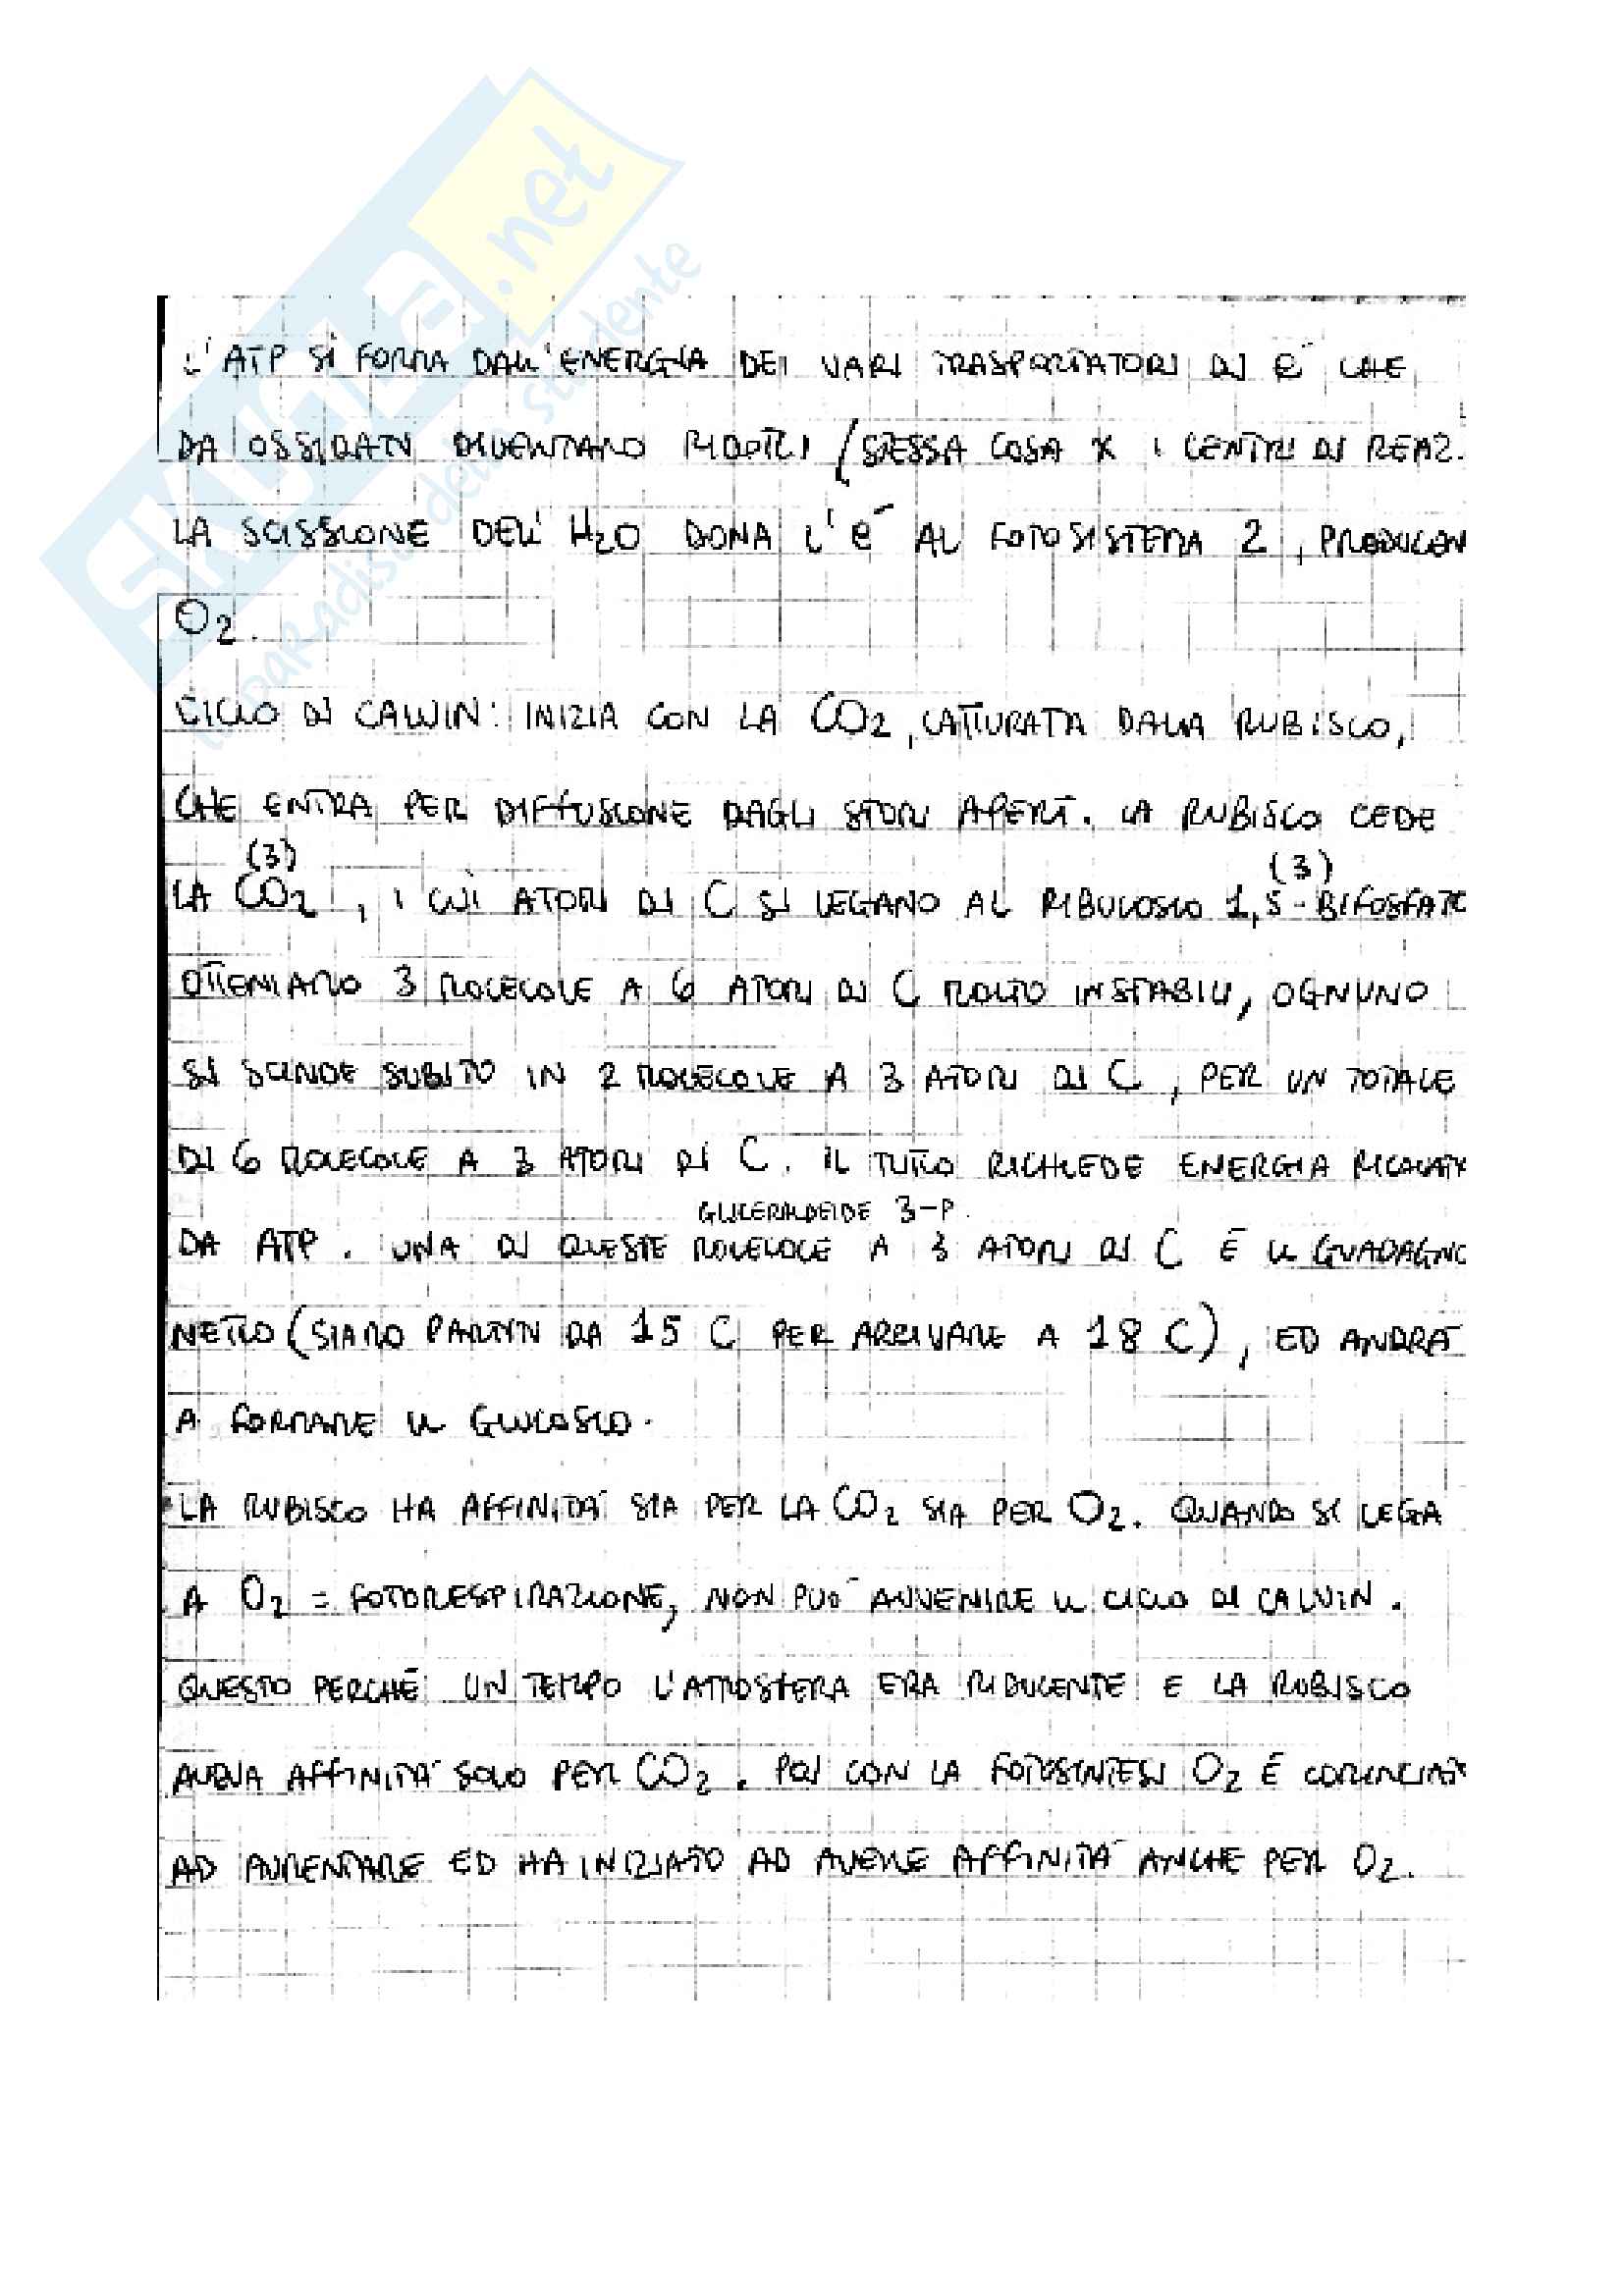 SKUOLA.net
il paradiso dello studente
L'ATP SI FORMA DALL'ENERGIA DEI VARI TRASPORTATORI DI e⁻ CHE
DA OSSIDATI DIVENTANO RIDOTTI (STESSA COSA X I CENTRI DI REAZ.
LA SCISSIONE DELL'H2O DONA L'e⁻ AL FOTOSISTEMA 2, PRODUCEN
O2.
CICLO DI CALVIN: INIZIA CON LA CO2, CATTURATA DALLA RUBISCO,
CHE ENTRA PER DIFFUSIONE DAGLI STOMI APERTI. LA RUBISCO CEDE
(3) (3)
LA CO2, I CUI ATOMI DI C SI LEGANO AL RIBULOSIO 1,5-BIFOSFATO
OTTENIAMO 3 MOLECOLE A 6 ATOMI DI C MOLTO INSTABILI, OGNUNO
SI SCINDE SUBITO IN 2 MOLECOLE A 3 ATOMI DI C, PER UN TOTALE
DI 6 MOLECOLE A 3 ATOMI DI C. IL TUTTO RICHIEDE ENERGIA RICAVATA
GLICERALDEIDE 3-P.
DA ATP. UNA DI QUESTE MOLECOLE A 3 ATOMI DI C È IL GUADAGNO
NETTO (SIAMO PARTITI DA 15 C PER ARRIVARE A 18 C), ED ANDRÀ
A FORMARE IL GLUCOSIO.
LA RUBISCO HA AFFINITÀ SIA PER LA CO2 SIA PER O2. QUANDO SI LEGA
A O2 = FOTORESPIRAZIONE, NON PUÒ AVVENIRE IL CICLO DI CALVIN.
QUESTO PERCHÉ UN TEMPO L'ATMOSFERA ERA RIDUCENTE E LA RUBISCO
AVEVA AFFINITÀ SOLO PER CO2. POI CON LA FOTOSINTESI O2 È COMINCIATO
AD AUMENTARE ED HA INIZIATO AD AVERE AFFINITÀ ANCHE PER O2.